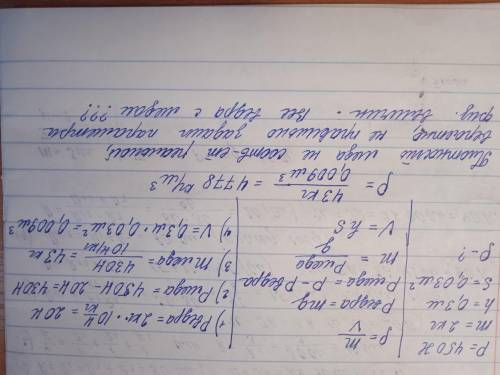 P = 450 Н
m = 2 кг
h = 0,3 м
S = 0,03 м²
ρ - ?
ρ = m/V
Pведра = mg
Pмеда = P - Pведра
m = Pмеда/g
V = hS
1) Pведра = 2кг · 10 Н/кг = 20 Н
2) Pмеда = 450Н - 20Н = 430Н
3) mмеда = 430Н/10Н/кг = 43 кг
4) V = 0,3м · 0,03м² = 0,009м³
ρ = 43 кг/0,009м³ = 4778 кг/м³
Плотность меда не соотв-ет реальной,
вероятно, не правильно задали параметра
физ. величин. Вес ведра с медом ???!